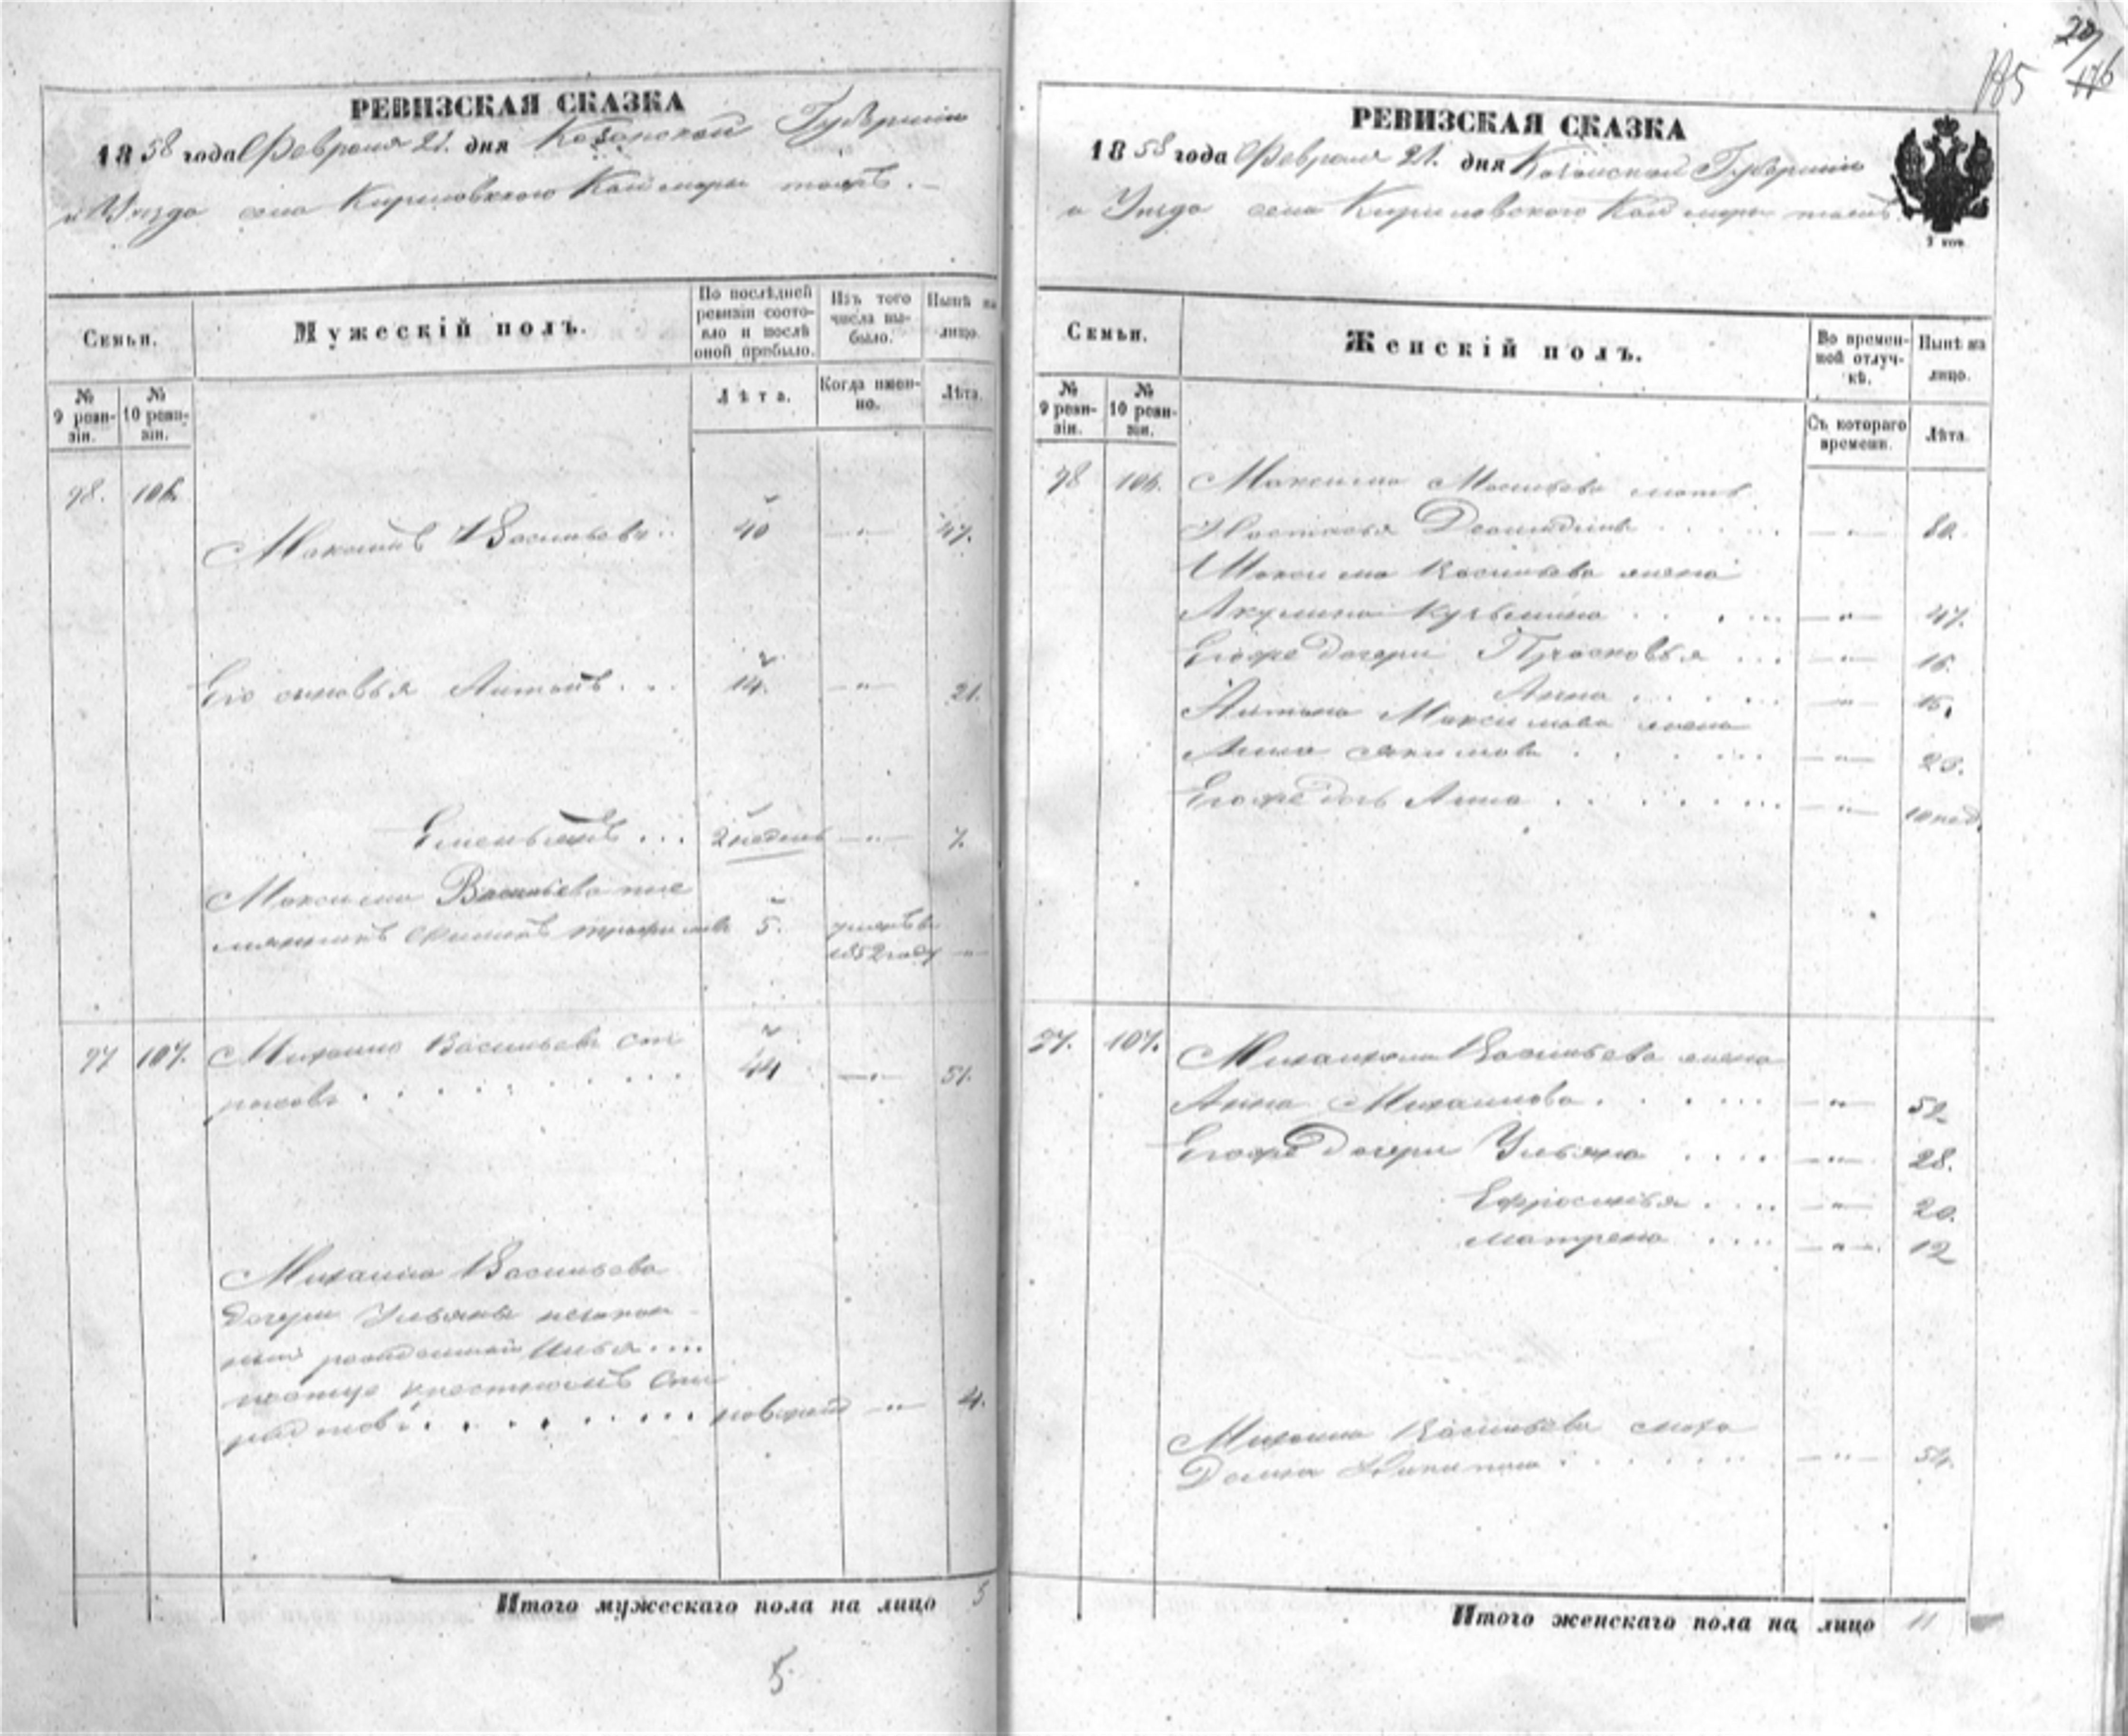 РЕВИЗСКАЯ СКАЗКА
1858 года Февраля 21. дня Казанской Губернии
и Уезда села Кириловского Каймары тожъ.
Семьи.
Мужескій полъ.
По послѣдней ревизіи состояло и послѣ оной прибыло.
Изъ того числа выбыло.
Нынѣ на лицо.
№ 9 ревизіи.
№ 10 ревизіи.
Лѣта.
Когда именно.
Лѣта.
98. 106.
Максимъ Васильевъ .. 40 — " — 47.
Его сыновья Антонъ . . . 14. — " — 21.
Емельянъ ... 2 недель — " — 7.
Максима Васильева пле
мянникъ Трофимовъ 5. умеръ въ
1852 году —
97 107. Михаила Васильевъ Спи
44 — " — 51.
Михаила Васильева
дочери Ульяны незакон
но рожденный Илья ....
Спи
новорож — " — 4.
Итого мужескаго пола на лицо 5
5
185
20/
176
РЕВИЗСКАЯ СКАЗКА
1858 года Февраля 21. дня Казанской Губернии
и Уезда села Кириловского Каймары тожъ.
Семьи.
Женскій полъ.
Во временной отлучкѣ.
Нынѣ на лицо.
№ 9 ревизіи.
№ 10 ревизіи.
Съ котораго времени.
Лѣта.
98 106. Максима Васильева мать
Настасья — " — 80.
Максима Васильева жена
Акулина Кузьмина . . . ... — " — 47.
Его же дочери Прасковья ... — " — 16.
Анна . . . . . — " — 15.
Антона Максимова жена
Анна Акимова . . . ... — " — 20.
Его же дочь Анна . . . . . ... — " — 10 нед.
97. 107. Михаила Васильева жена
Анна Михайлова . . . ... — " — 52
Его же дочери Ульяна .... — " — 28.
Ефросинья .... — " — 20.
Матрена .... — " — 12
Михаила Васильева сноха
Домна — " — 54.
Итого женскаго пола на лицо 11